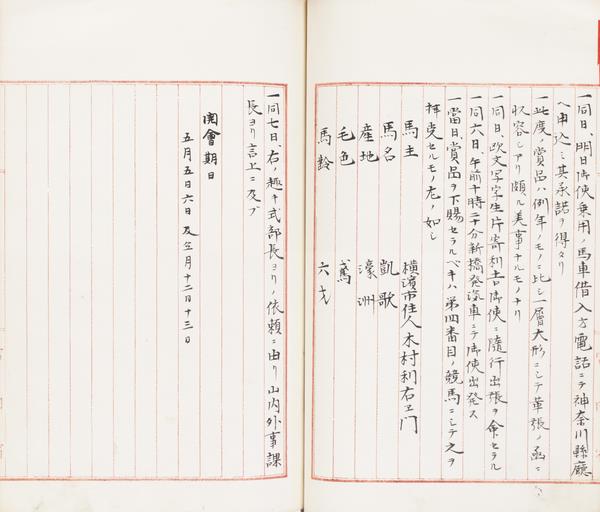 一同日、明日御使乗用ノ馬車借入方電話ニテ神奈川縣廳
ヘ申込ミ其承諾ヲ得タリ
一此度ノ賞品ハ例年ノモノニ比シ一層大形ニシテ革張ノ函ニ
収容シアリ頗ル美事ナルモノナリ
一同日、欧文写字生片寄利士口御使ニ随行出張ヲ命セラル
一同六日、午前十時二十分新橋発汽車ニテ御使出発ス
一當日賞品ヲ下賜セラルベキハ第四番目ノ競馬ニシテ之ヲ
拝受セルモノ左ノ如シ
馬主 横濱市住人木村利右ヱ門
馬名 凱歌
産地 濠洲
毛色 鳶
馬齢 六才
一同七日、右ノ趣キ式部長ヨリノ依頼ニ由リ山内外事課
長ヨリ言上ニ及ブ
開會期日
五月五日六日及仝月十二日十三日